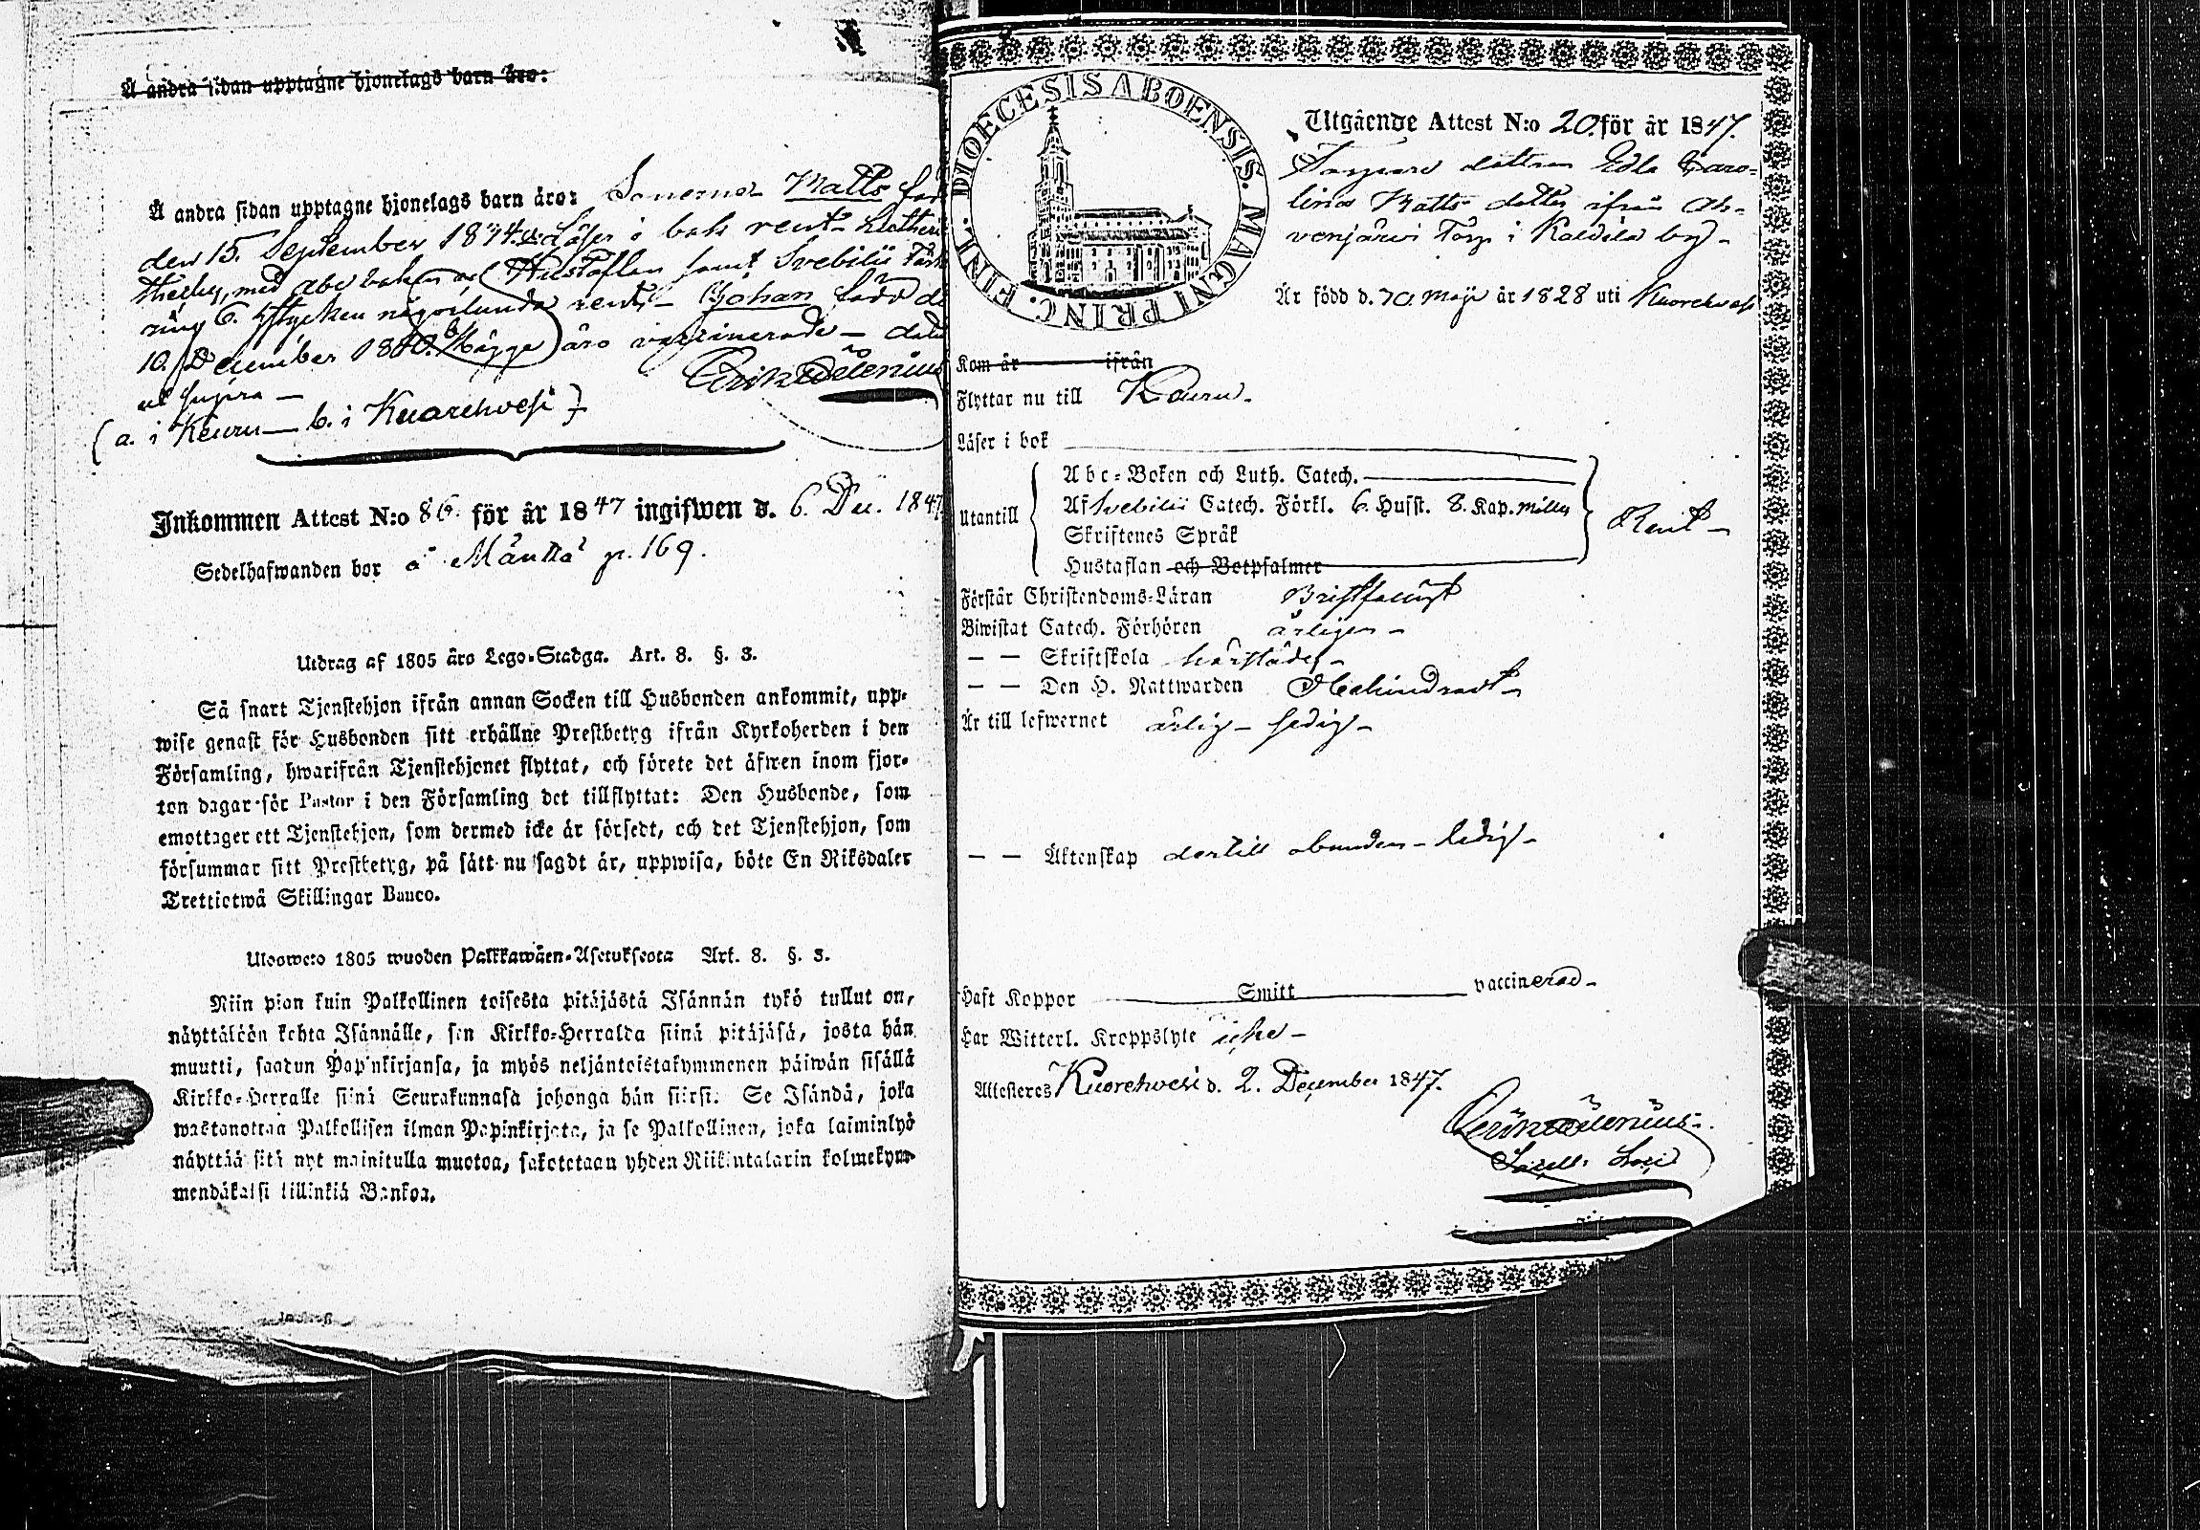 Å andra sidan upptagne hjonelags barn äro:
Å andra sidan upptagne hjonelags barn äro: Sönerna Matts föd
den 15. September 1834. Läser i bok rent Lutheri
med abc boken och Hustaflan samt Svebilii
6. Stycken någorlunda rent – Johan född de
10. December 1840. Bägge äro vaccinerade – datum
ut supra –
(a. i Keuru – b. i Kuorehvesi)
Inkommen Attest N:o 86. för år 1847 ingifwen d. 6. Dec. 1847
Sedelhafwanden bor å Mänttä p. 169.
Utdrag af 1805 års Lego-Stadga. Art. 8. §. 3.
Så snart Tjenstehjon ifrån annan Socken till Husbonden ankommit, upp-
wise genast för Husbonden sitt erhållne Prestbetyg ifrån Kyrkoherden i den
Församling, hwarifrån Tjenstehjonet flyttat, och förete det äfwen inom fjor-
ton dagar för Pastor i den Församling det tillflyttat: Den Husbonde, som
emottager ett Tjenstehjon, som dermed icke är försedt, och det Tjenstehjon, som
försummar sitt Prestbetyg, på sätt nu sagdt är, uppwisa, böte En Riksdaler
Trettiotwå Skillingar Banco.
Ulosweto 1805 wuoden Palkkawäen-Asetuksesta Art. 8. §. 3.
Niin pian kuin Palkollinen toisesta pitäjästä Isännän tykö tullut on,
näyttäköön kohta Isännälle, sen Kirkko-Herralda siinä pitäjäsä, josta hän
muutti, saadun Papinkirjansa, ja myös neljäntoistakymmenen päiwän sisällä
Kirkko-Herralle siinä Seurakunnasa johonga hän siirsi. Se Isändä, joka
wastanottaa Palkollisen ilman Papinkirjata, ja se Palkollinen, joka laiminlyö
näyttää sitä nyt mainitulla muotoa, sakotetaan yhden Riikintalarin kolmekym-
mendäkaksi killinkiä Bankoa.
DIOECESIS ABOENSIS. MAGNI PRINC. FINL.
Utgående Attest N:o 20 för år 1847.
Torpare dottren Edla Caro-
lina Matts dotter ifrån Ah-
venjärwi Torp i Kaldila by –
Är född d. 30 Maji år 1828 uti Kuorehvesi
Kom år ifrån
Flyttar nu till Keuru.
Läser i bok
Utantill
Abc-Boken och Luth. Catech.
Af Svebilii Catech. Förkl. 6. Husst. 8. Kap. Möllers
Skriftenes Språk
Hustaflan och Botpsalmer
Rent –
Förstår Christendoms-Läran Bristfälligt
Biwistat Catech. Förhören årligen –
– – Skriftskola härstädes –
– – Den H. Nattwarden Obehindradt –
Är till lefwernet ärlig – sedig –
– – Äktenskap dertill obunden – ledig –
Haft Koppor Smitt vaccinerad –
Har Witterl. Kroppslyte icke –
Attesteres Kuorehvesi d. 2. December 1847.